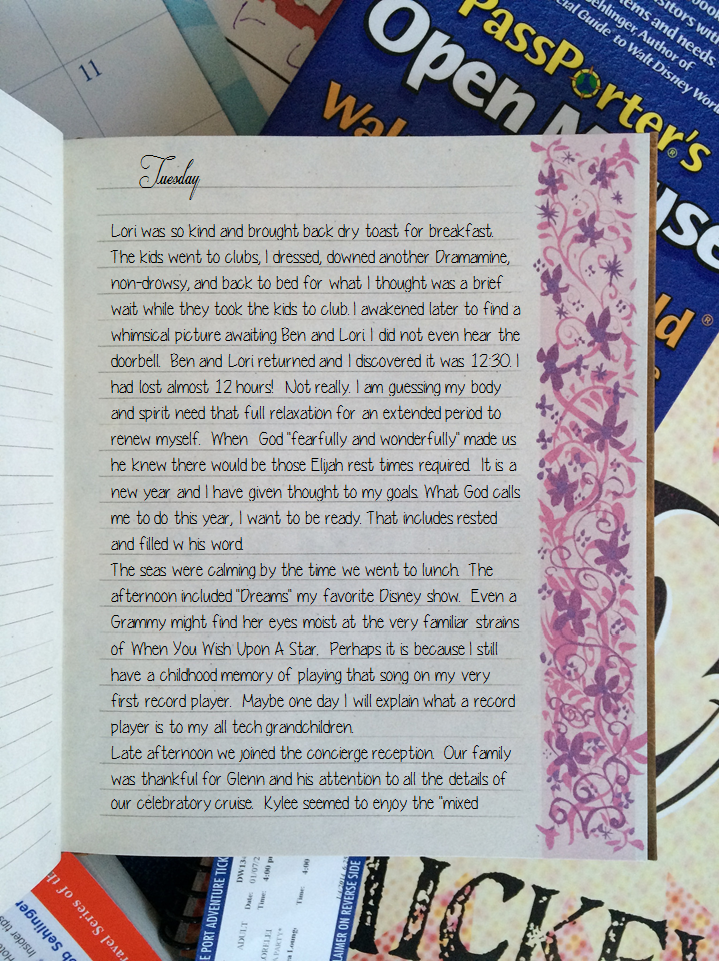 11
PassPorter's
Open
Guide to Walt Disney World
Author of
items and needs.
®
Tuesday
Lori was so kind and brought back dry toast for breakfast.
The kids went to clubs, I dressed, downed another Dramamine,
non-drowsy, and back to bed for what I thought was a brief
wait while they took the kids to club. I awakened later to find a
whimsical picture awaiting Ben and Lori. I did not even hear the
doorbell. Ben and Lori returned and I discovered it was 12:30. I
had lost almost 12 hours! Not really. I am guessing my body
and spirit need that full relaxation for an extended period to
renew myself. When God "fearfully and wonderfully" made us
he knew there would be those Elijah rest times required. It is a
new year and I have given thought to my goals. What God calls
me to do this year, I want to be ready. That includes rested
and filled w his word.
The seas were calming by the time we went to lunch. The
afternoon included "Dreams" my favorite Disney show. Even a
Grammy might find her eyes moist at the very familiar strains
of When You Wish Upon A Star. Perhaps it is because I still
have a childhood memory of playing that song on my very
first record player. Maybe one day I will explain what a record
player is to my all tech grandchildren.
Late afternoon we joined the concierge reception. Our family
was thankful for Glenn and his attention to all the details of
our celebratory cruise. Kylee seemed to enjoy the "mixed
Travel Series of
ob Sehlinger
Insider tips
E PORT ADVENTURE TICK
ADULT
Date: 01/07/2
Time: 4:00
Time: 4:00
LAIMER ON REVERSE SIDE
MICKEY